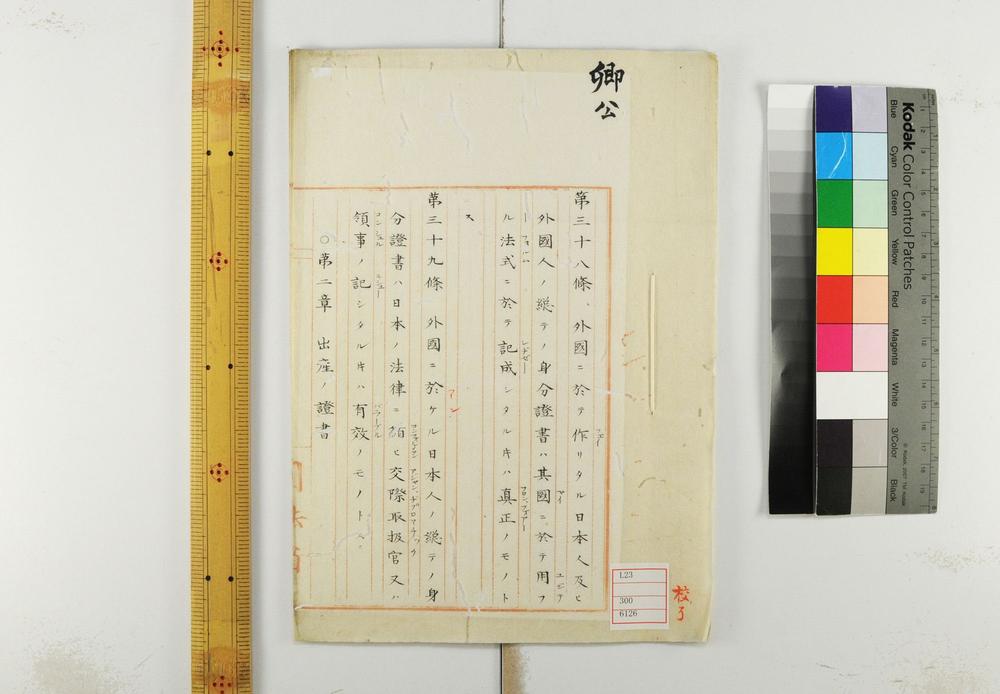 卿
公
第三十八條、外國ニ於テ作リタル日本人及ヒ
外國人ノ総テノ身分證書ハ其國ニ於テ用フ
ル法式ニ於テ記成シタル時ハ真正ノモノト
ス
第三十九條 外國ニ於ケル日本人ノ総テノ身
分證書ハ日本ノ法律ニ循ヒ交際取扱官又ハ
領事ノ記シタル時ハ有效ノモノトス
○第二章 出産ノ證書
校了
L23
300
6126
Kodak Color Control Patches
Blue
Cyan
Green
Yellow
Red
Magenta
White
3/Color
Black